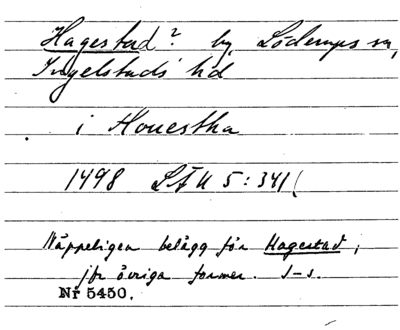 Hagestad? by, Löderups sn,
Ingelstads hd
i Houestha
1498 LÄU 5:341
Näppeligen belägg för Hagestad;
jfr övriga former. J-s.
Nr 5450.